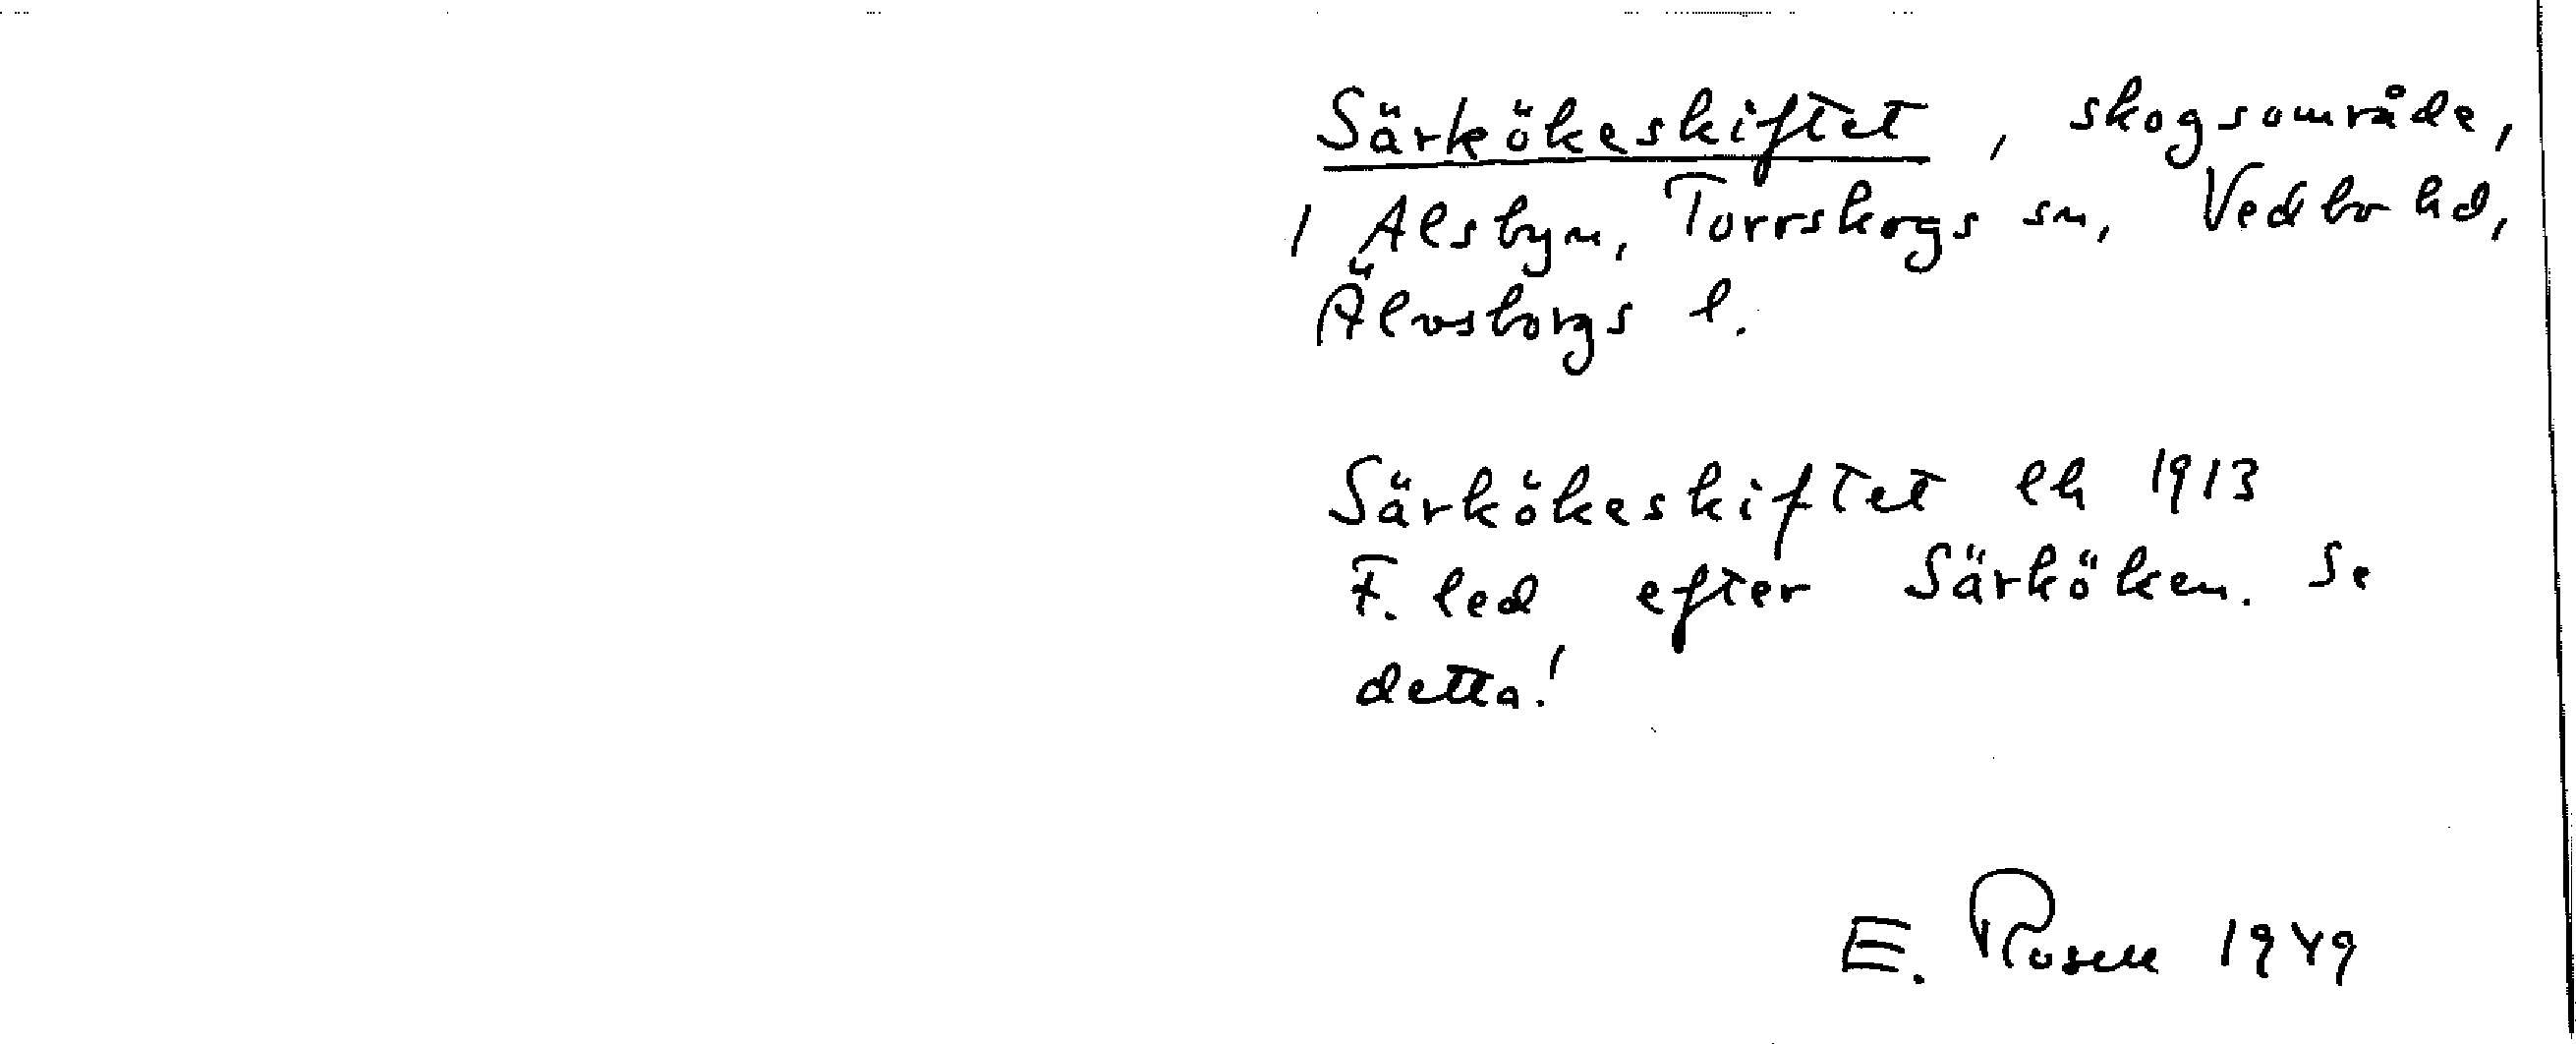 Särkökeskiftet, skogsområde,
1 Alsbyn, Torrskogs sn, Vedbo hd,
Älvsborgs l.
Särkökeskiftet lh 1913
F. led efter Särköken. Se
detta!
E. Rosell 1949